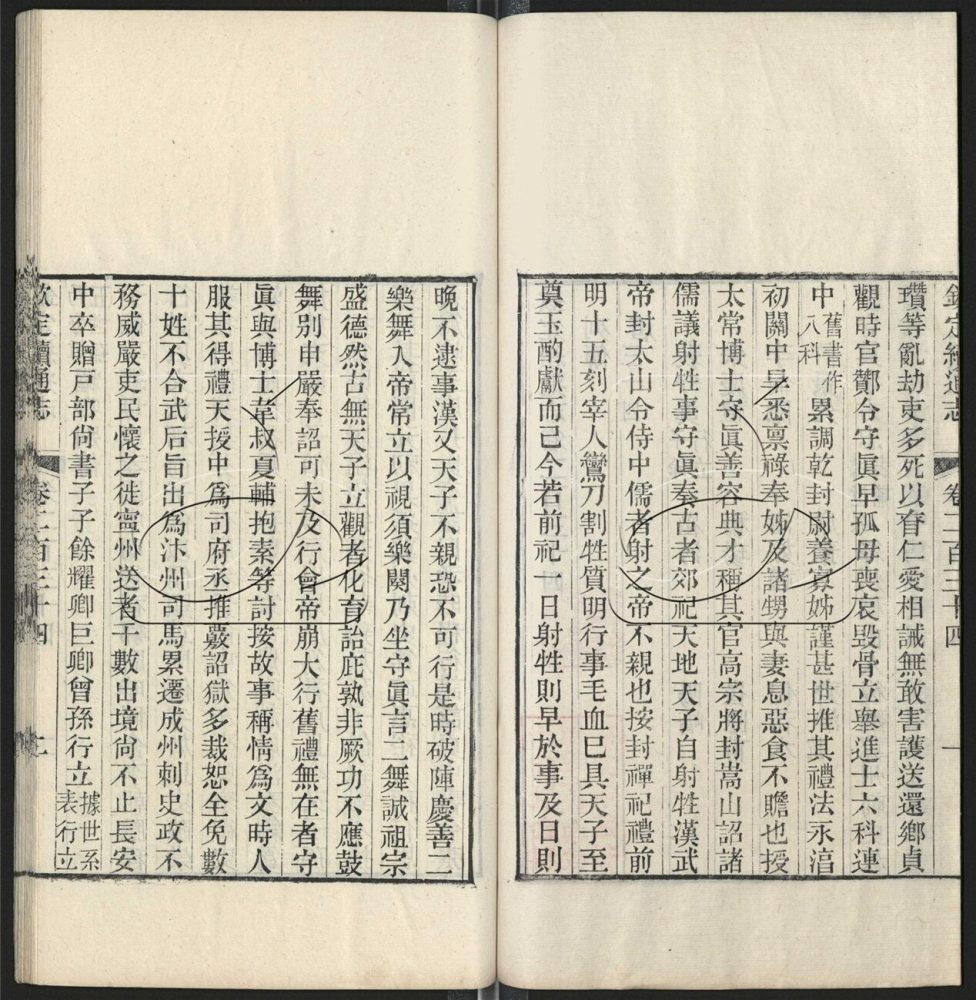 欽定續通志 卷二百三十四 一
瓚等亂劫吏多死以育仁愛相誡無敢害護送還鄉貞
觀時官鄮令守眞早孤母喪哀毁骨立舉進士六科連
中舊書作八科累調乾封尉養寡姊謹甚世推其禮法永湻
初關中旱悉禀祿奉姊及諸甥與妻息惡食不贍也授
太常博士守眞善容典才稱其官高宗將封嵩山詔諸
儒議射牲事守眞奏古者郊祀天地天子自射牲漢武
帝封太山令侍中儒者射之帝不親也按封禪祀禮前
明十五刻宰人鸞刀割牲質明行事毛血已具天子至
奠玉酌獻而已今若前祀一日射牲則早於事及日則
晚不逮事漢又天子不親恐不可行是時破陣慶善二
樂舞入帝常立以視須樂闋乃坐守眞言二舞誠祖宗
盛德然古無天子立觀者化育詒庇孰非厥功不應鼓
舞别申嚴奉詔可未及行會帝崩大行舊禮無在者守
眞與博士韋叔夏輔抱素等討按故事稱情爲文時人
服其得禮天授中爲司府丞推覈詔獄多裁恕全免數
十姓不合武后旨出爲汴州司馬累遷成州刺史政不
務威嚴吏民懷之徙寧州送者千數出境尙不止長安
中卒贈戸部尙書子子餘耀卿巨卿曾孫行立據世系表行立
欽定續通志 卷二百三十四